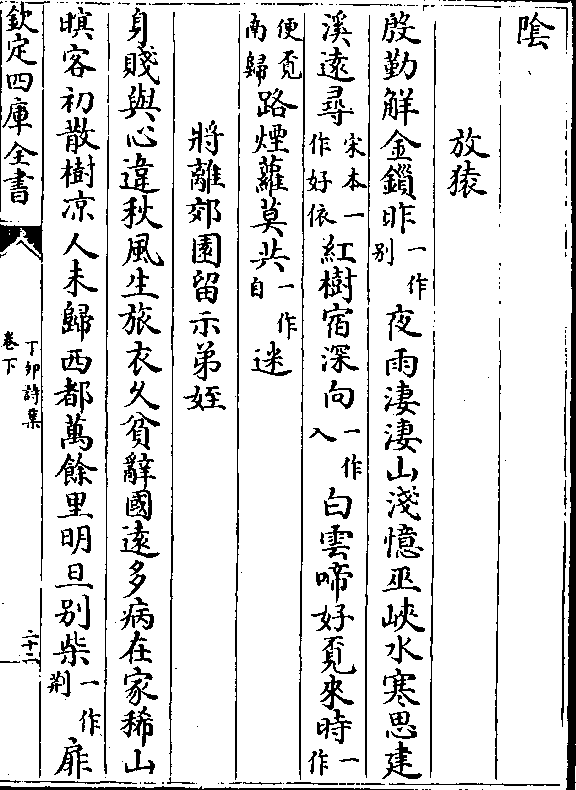 陰
放猿
殷勤解金鎖昨一作别夜雨淒淒山淺憶巫峽水寒思建
溪遠尋宋本一作好依紅樹宿深向一作入白雲啼好覔來時一作
便覔南歸路煙蘿莫共一作自迷
將離郊園留示弟姪
身賤與心違秋風生旅衣久貧辭國遠多病在家稀山
暝客初散樹凉人未歸西都萬餘里明旦别柴一作荆扉
欽定四庫全書
丁卯詩集
卷下
二十二